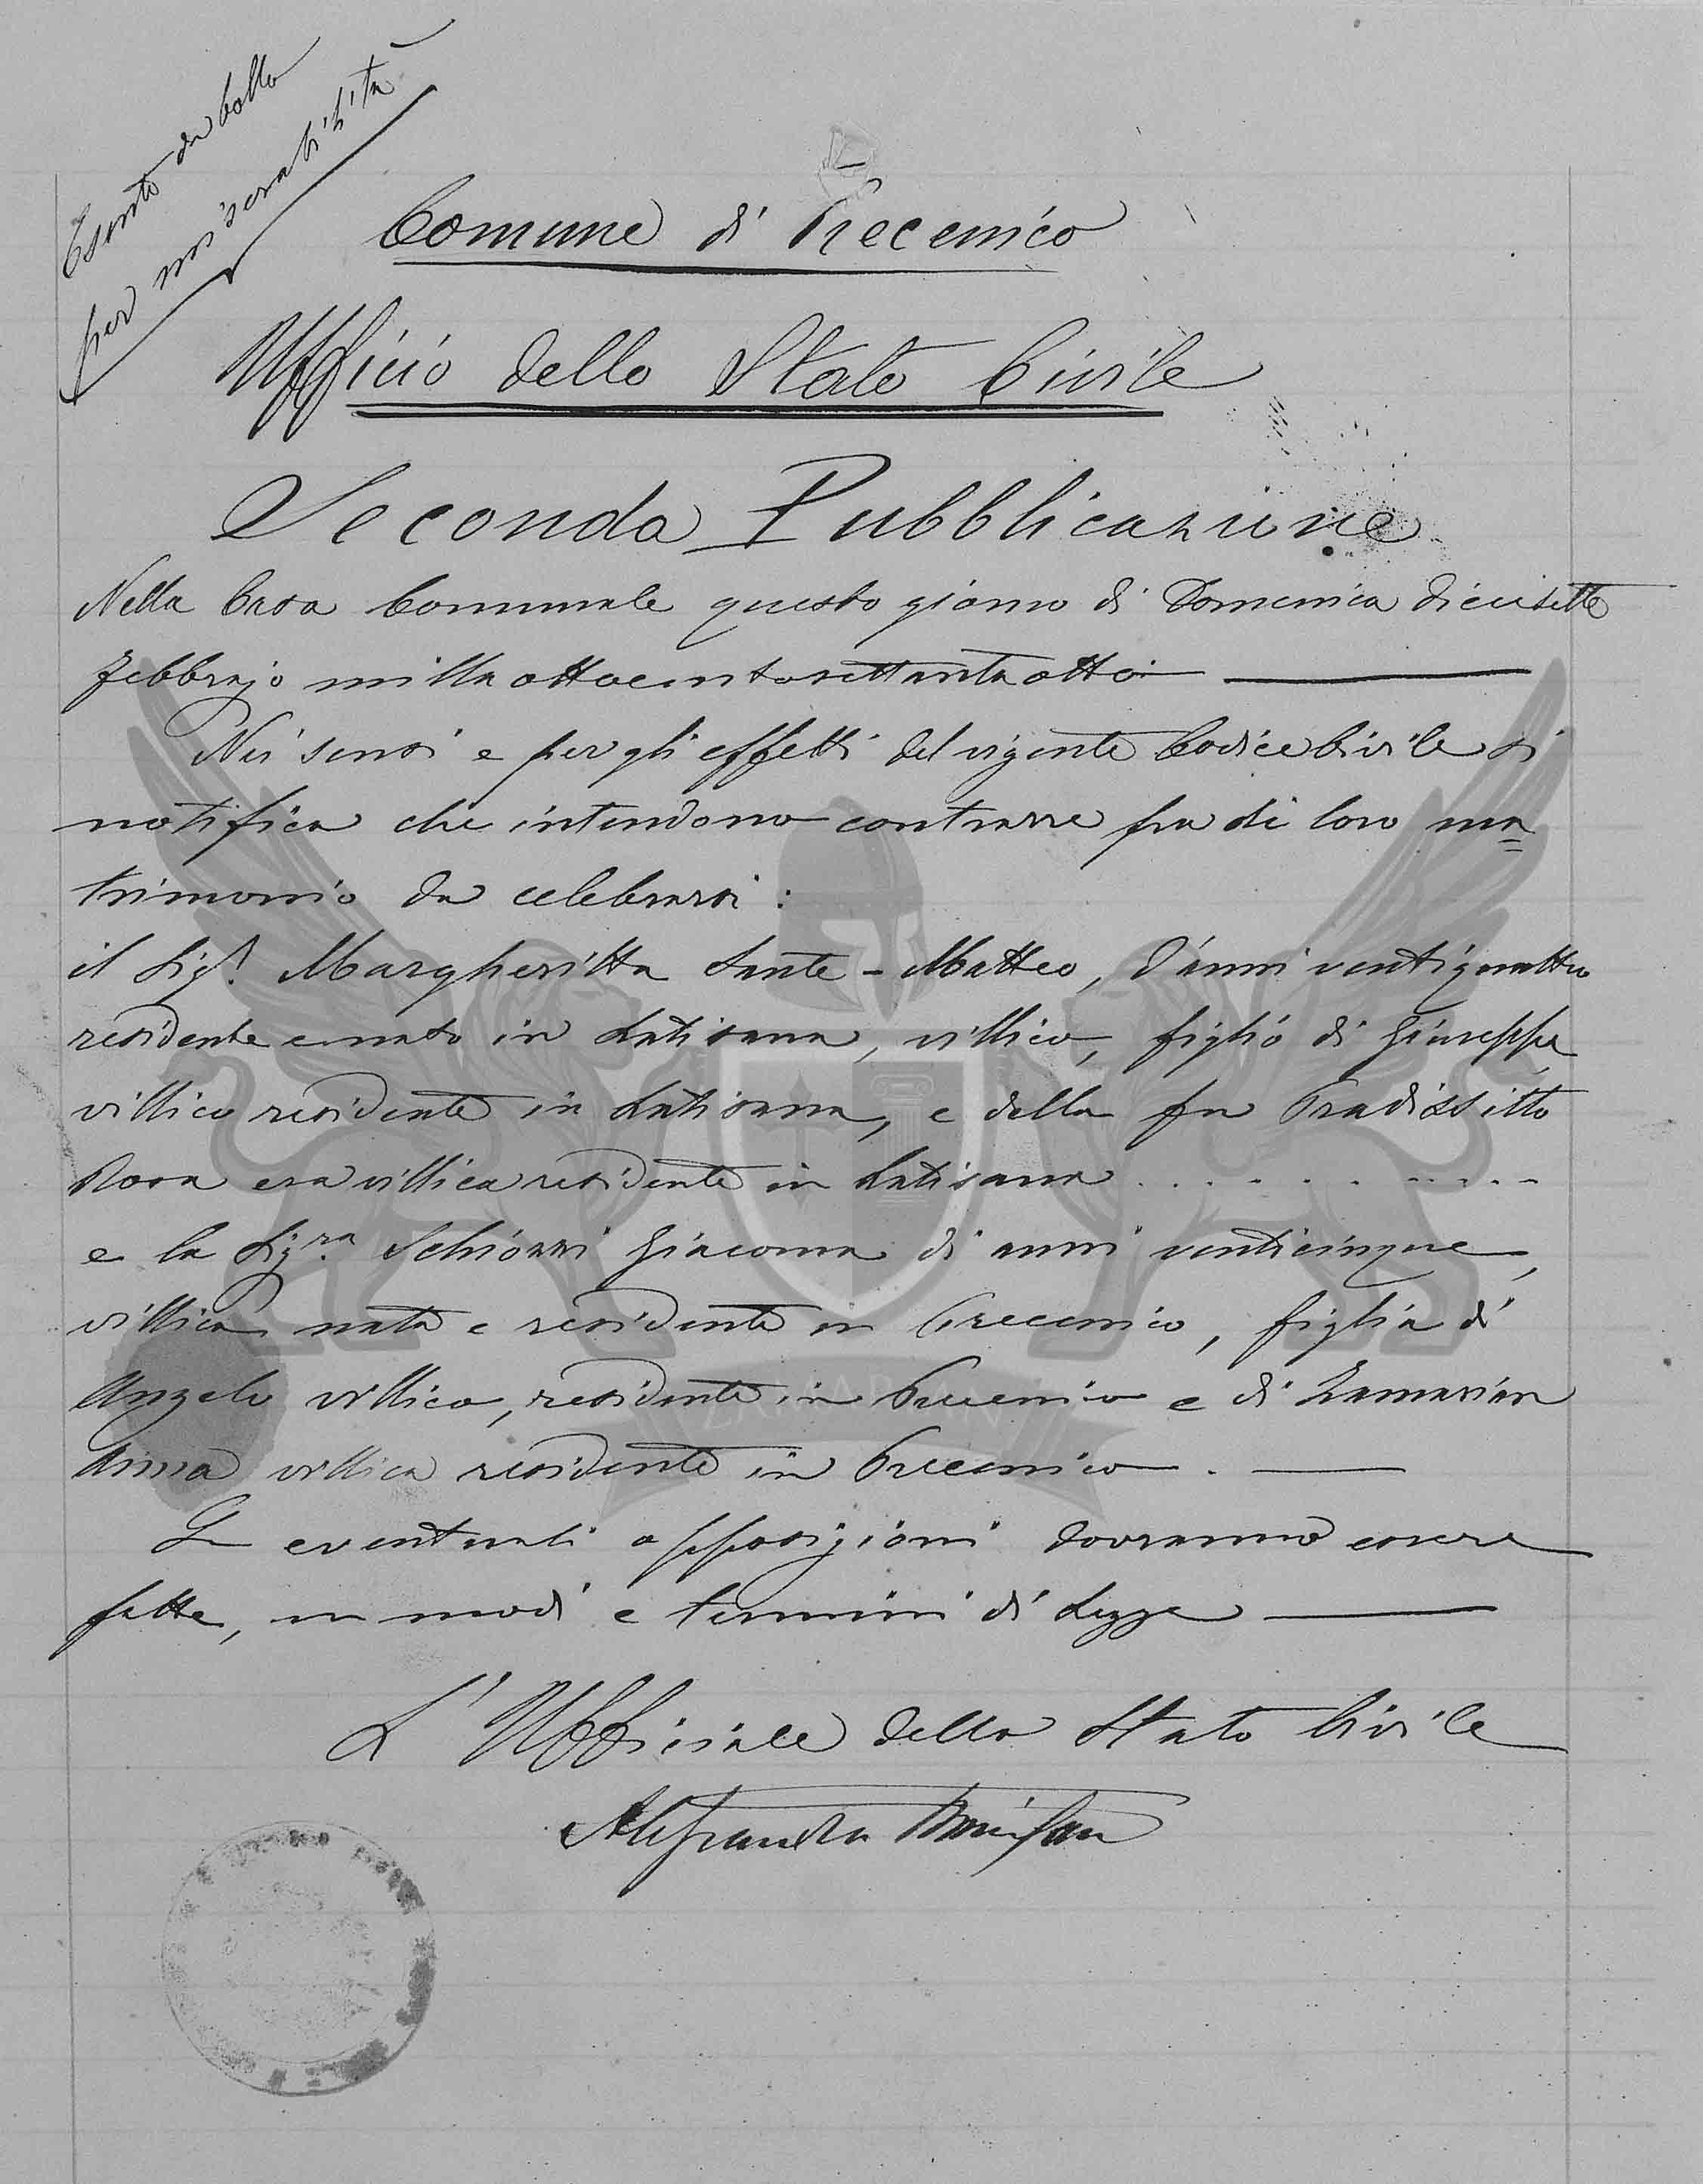 Esente da bollo
per miserabilità
Comune di Precenico
Ufficio dello Stato Civile
Seconda Pubblicazione
Nella Casa Comunale questo giorno di Domenica diecisette
Febbrajo milleottocentosettantaotto
Nei sensi e per gli effetti del vigente Codice Civile si
notifica che intendono contrarre fra di loro ma=
trimonio da celebrarsi :
il Sigr. Margheritta Sante - Matteo, d'anni ventiquattro
residente e nato in Latisana, villico, figlio di Giuseppe
villico residente in Latisana, e della fu Pradissitto
Rosa era villica residente in Latisana . . . . . . . . . . .
e la Sigra. Schiozzi Giacoma di anni venticinque,
villica nata e residente in Precenico, figlia di
Angelo villico, residente in Precenico e di Zamarian
Anna villica residente in Precenico .
Le eventuali opposizioni dovranno essere
fatte, in modi e termini di Legge
L'Ufficiale dello Stato Civile